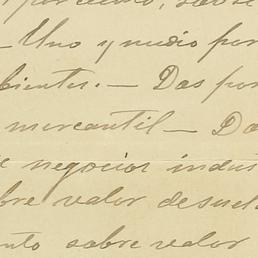 por ciento, sobre
- Uno y medio por
bientes. - Dos por
mercantil - Do
negocios indus
bre valor desue
nto sobre valor